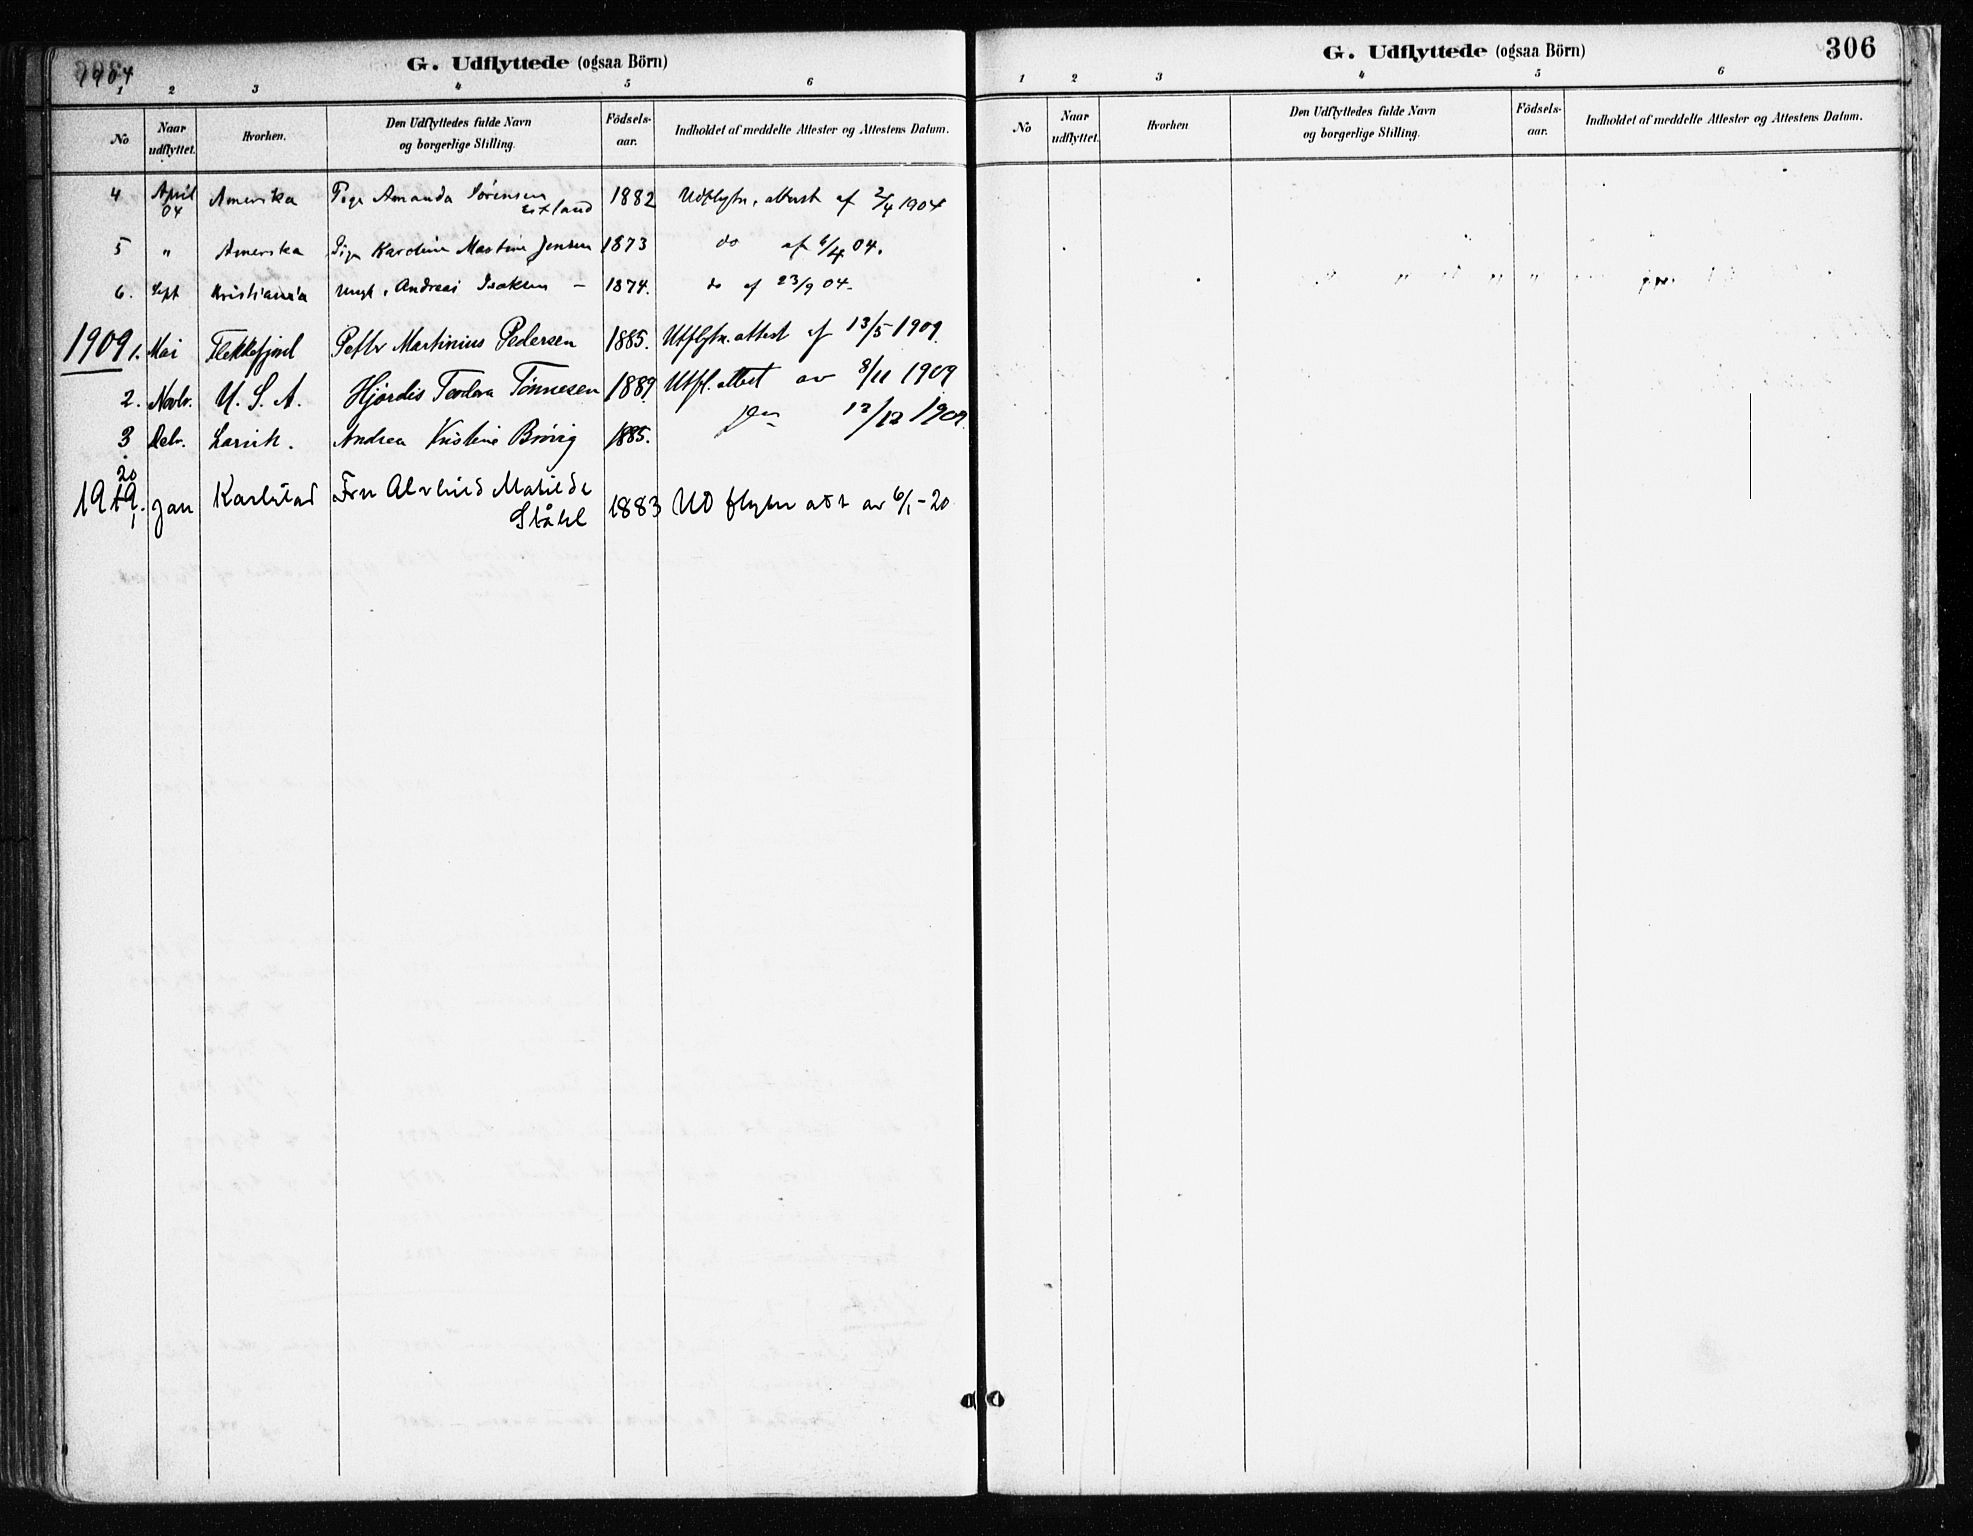 1904
G. Udflyttede (ogsaa Börn)
1 2 3 4 5 6
No Naar udflyttet. Hvorhen. Den Udflyttedes fulde Navn og borgerlige Stilling. Födsels-aar. Indholdet af meddelte Attester og Attestens Datum.
4 April 04 Amerika Pige Amanda Sörensen Estland 1882 Udflytn. attest af 2/4 1904
5 " Amerika Pige Karoline Martine Jensen 1873 do af 6/4 04.
6. Sept Kristiania Ungk. Andreas Isaksen – 1874. do af 23/9 04.
1909 1. Mai Flekkefjord Petter Martinius Pedersen 1885. Utflytn. attest af 13/5 1909.
2. Novbr. U. S. A. Hjørdis Teodora Tönnesen 1889 Utfl. attest av 8/11 1909
3 Debr. Larvik. Andrea Kristine Brövig 1885. 12/12 1909.
20
1919. 1 Jan Karlstad Fru Alvhild Matilde Ståhl 1883 Ud flytn att av 6/1-20
G. Udflyttede (ogsaa Börn) 306
1 2 3 4 5 6
No Naar udflyttet. Hvorhen Den Udflyttedes fulde Navn og borgerlige Stilling. Födsels-aar. Indholdet af meddelte Attester og Attestens Datum.